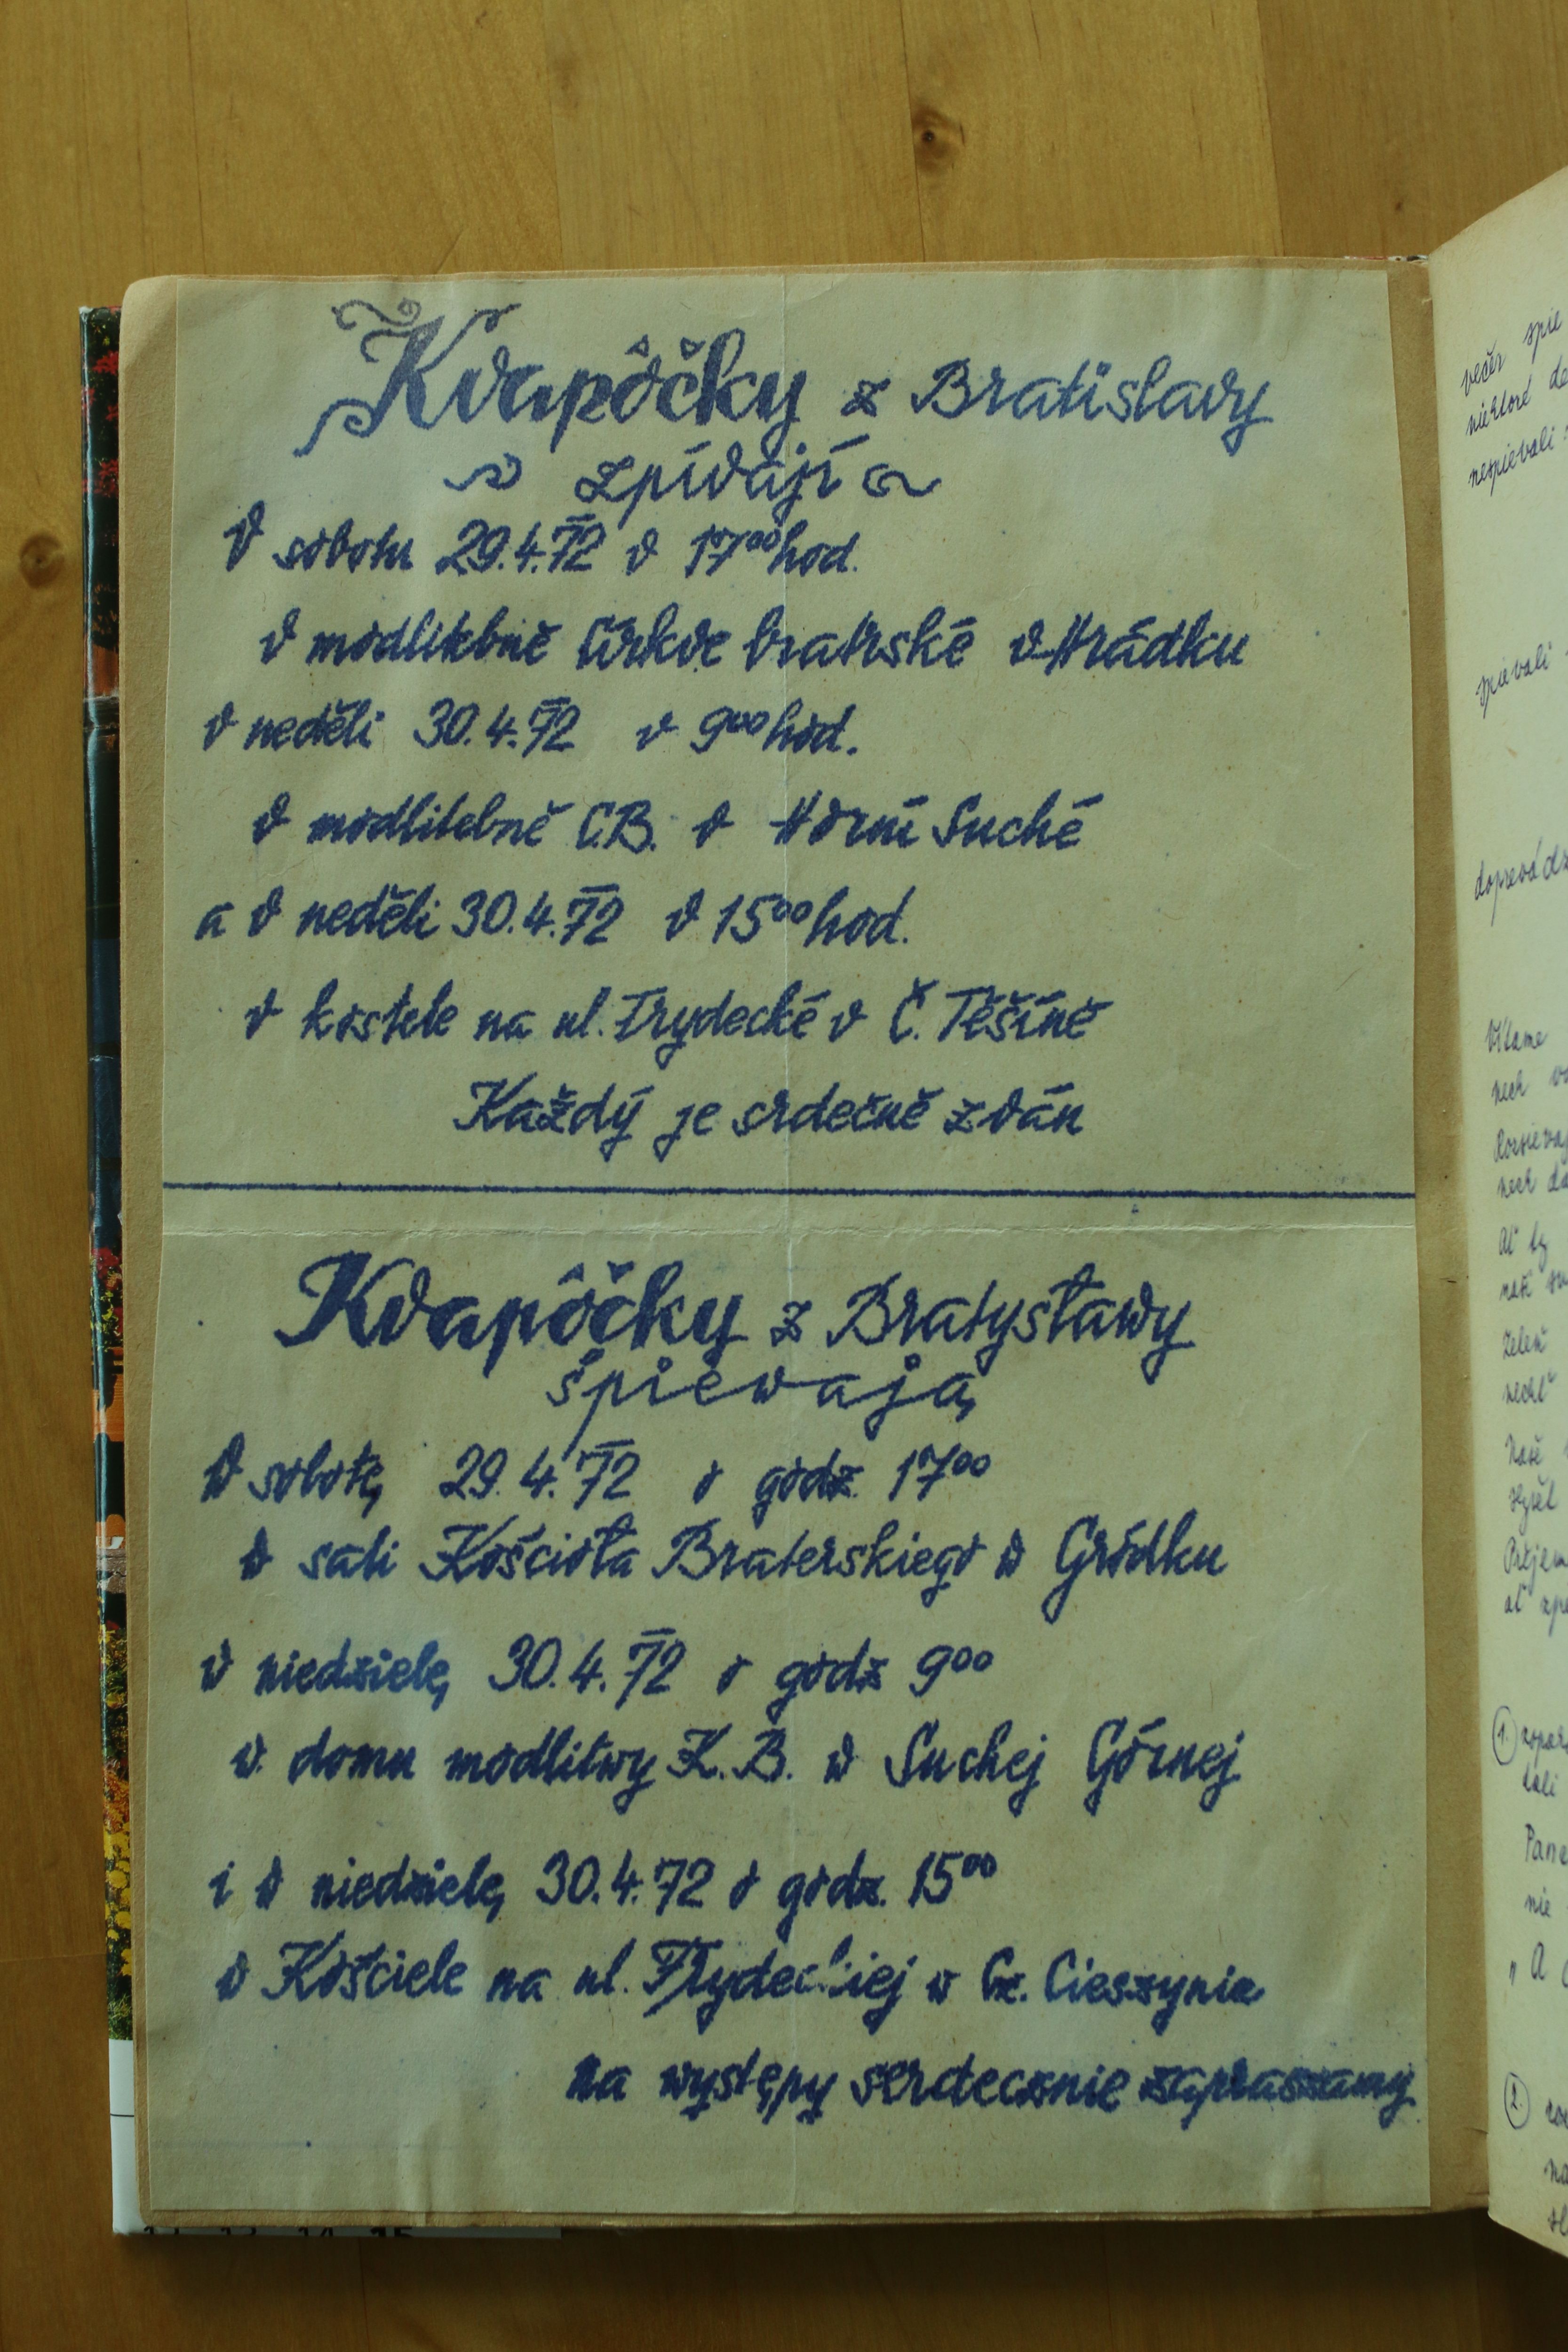 Kvapôčky z Bratislavy
zpívají
V sobotu 29.4.72 v 17⁰⁰ hod.
v modlitebně Církve bratrské v Hrádku
v neděli 30.4.72 v 9⁰⁰ hod.
v modlitebně C.B. v Horní Suché
a v neděli 30.4.72 v 15⁰⁰ hod.
v kostele na ul. Frydecké v Č. Těšíně
Každý je srdečně zván
Kvapôčky z Bratysławy
śpiewają
W sobotę 29.4.72 o godz. 17⁰⁰
w sali Kościoła Braterskiego w Gródku
w niedzielę 30.4.72 o godz 9⁰⁰
w domu modlitwy K.B. w Suchej Górnej
i w niedzielę 30.4.72 o godz. 15⁰⁰
w Kościele na ul. Frydeckiej w Cz. Cieszynie
na występy serdecznie zapraszamy
večer spie
niektoré
nespievali
spievali
Vítame
nech
nech
Pane
nie